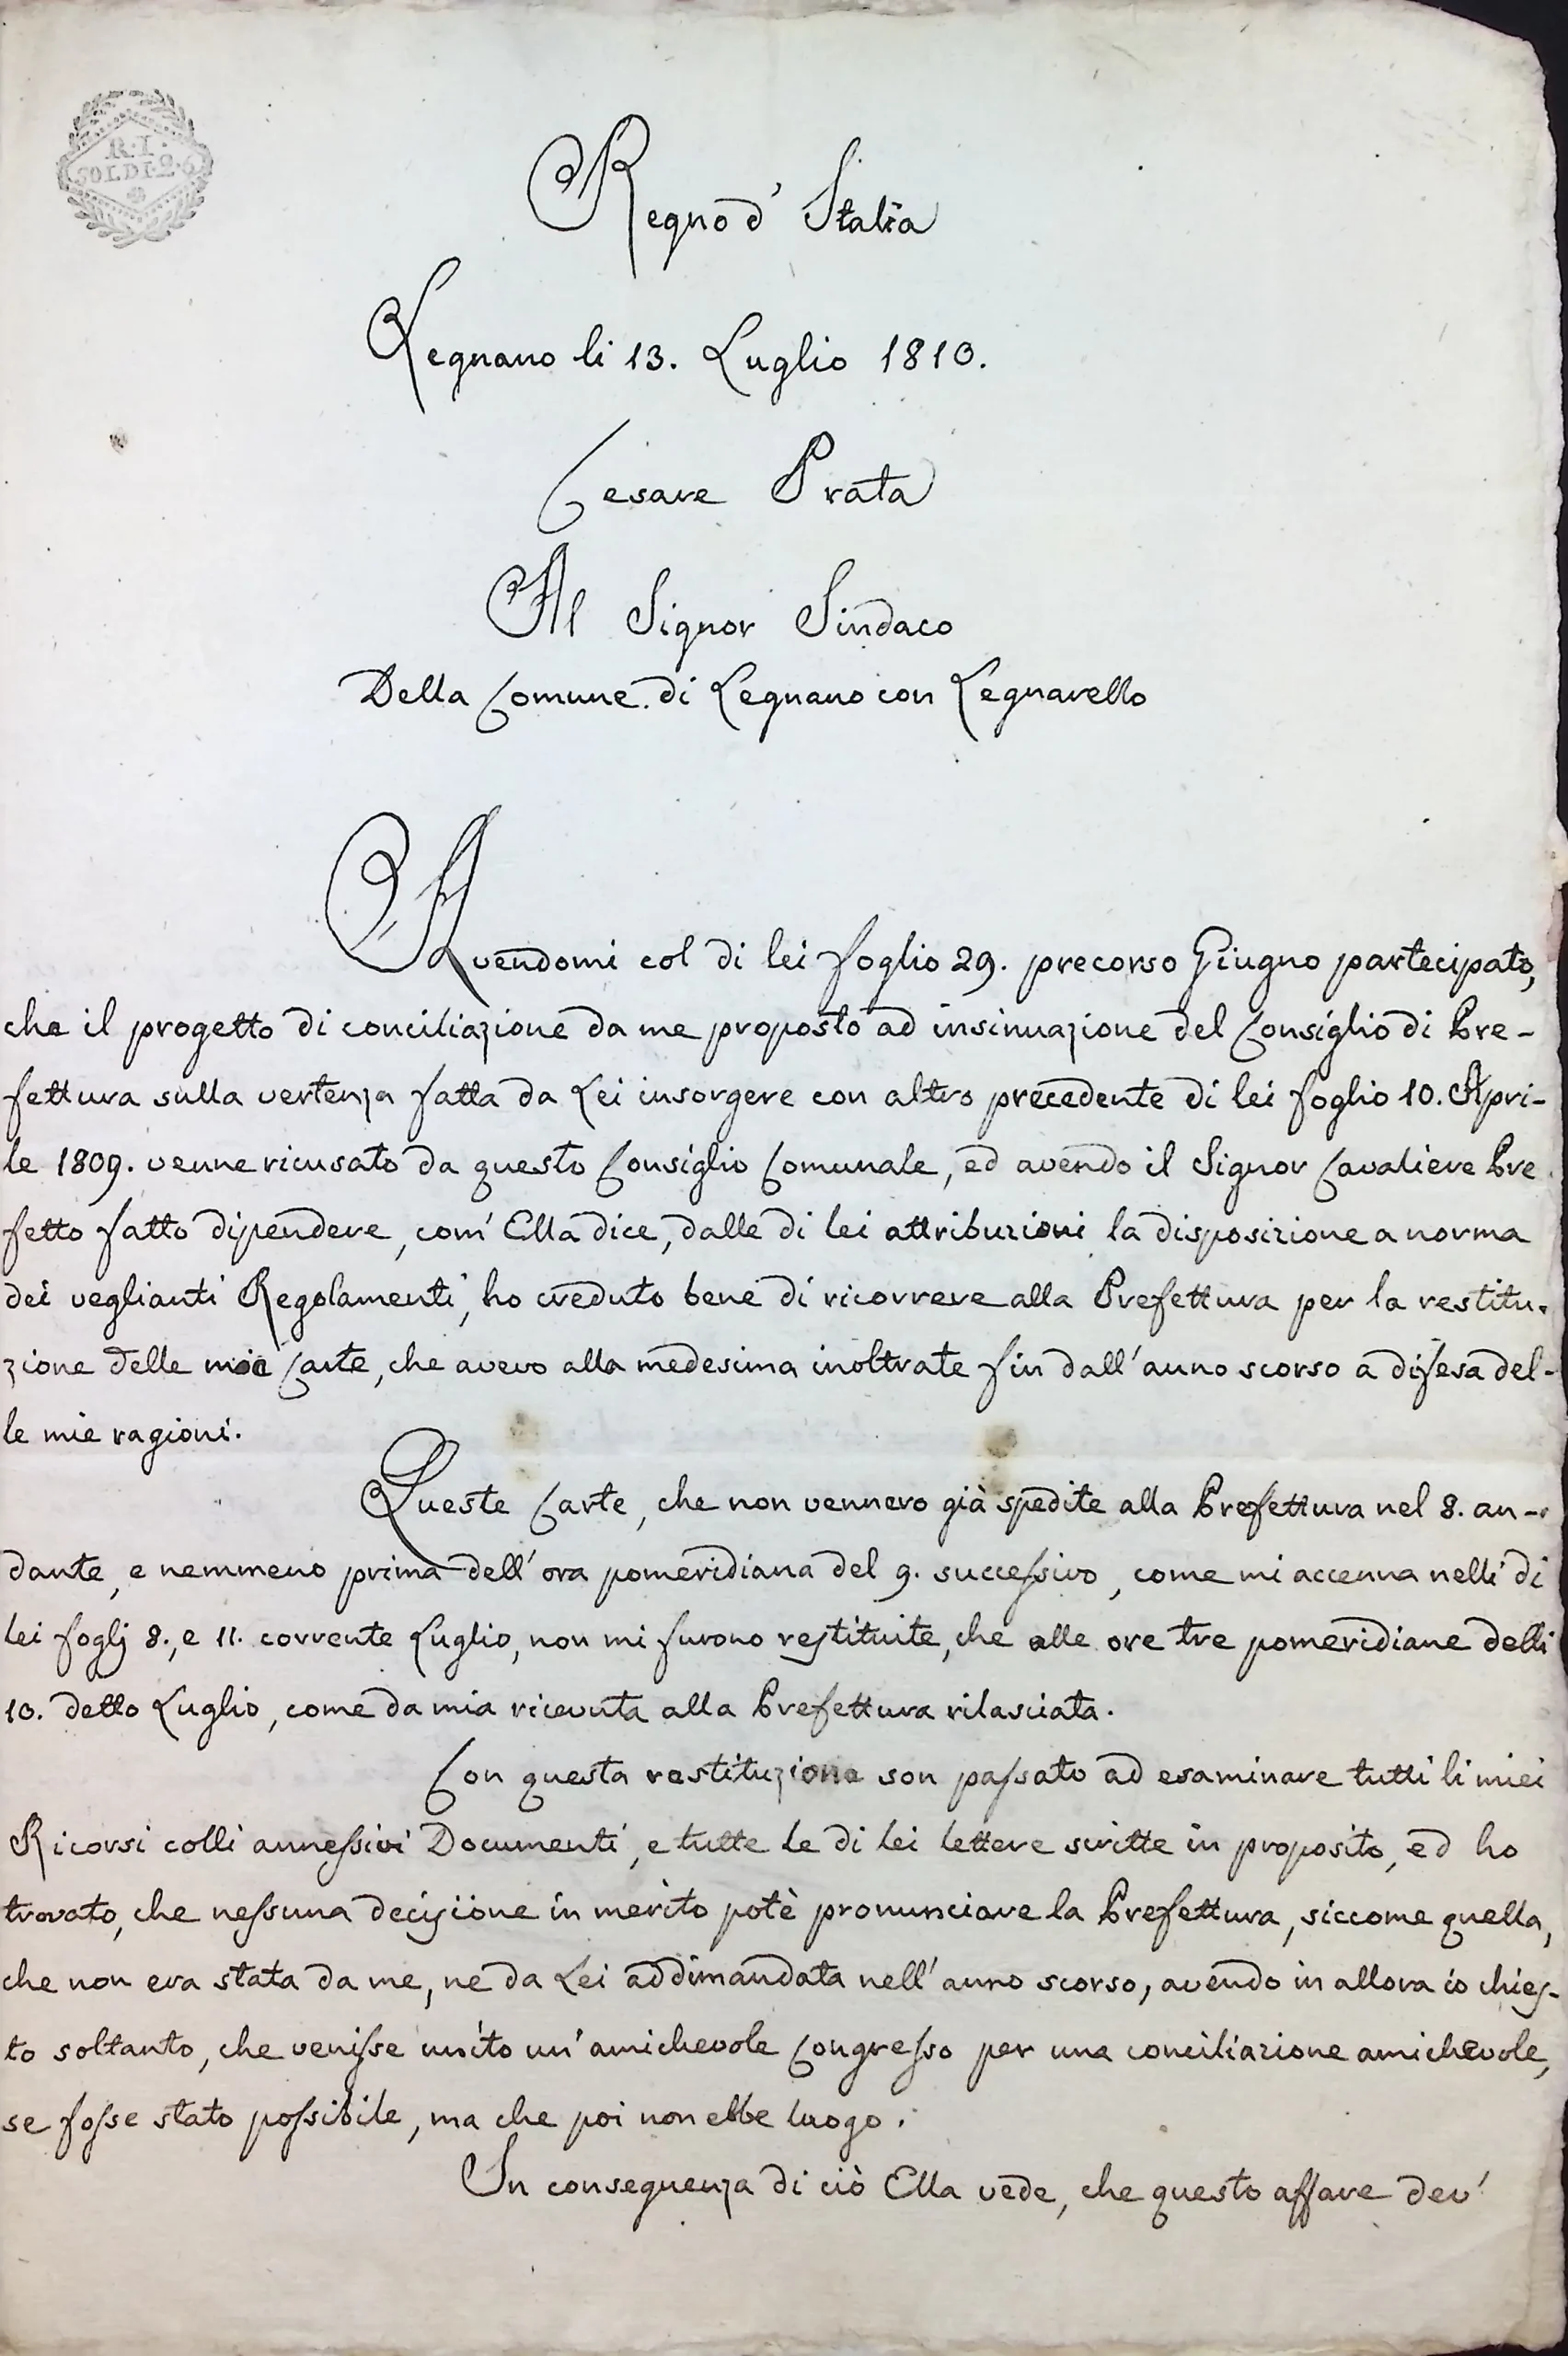 R. I.
SOLDI. 2. 6
Regno d' Italia
Legnano li 13. Luglio 1810.
Cesare Prata
Al Signor Sindaco
Della Comune di Legnano con Legnarello
Avendomi col di lei foglio 29. precorso Giugno partecipato,
che il progetto di conciliazione da me proposto ad insinuazione del Consiglio di Pre-
fettura sulla vertenza fatta da Lei insorgere con altro precedente di lei foglio 10. Apri-
le 1809. venne ricusato da questo Consiglio Comunale, ed avendo il Signor Cavaliere Pre
fetto fatto dipendere, com' Ella dice, dalle di lei attribuzioni la disposizione a norma
dei veglianti Regolamenti, ho creduto bene di ricorrere alla Prefettura per la restitu-
zione delle mie Carte, che avevo alla medesima inoltrate fin dall' anno scorso a difesa del-
le mie ragioni.
Queste Carte, che non vennero già spedite alla Prefettura nel 8. an-
dante, e nemmeno prima dell' ora pomeridiana del 9. successivo, come mi accenna nelli di
lei foglj 8., e 11. corrente Luglio, non mi furono restituite, che alle ore tre pomeridiane delli
10. detto Luglio, come da mia ricevuta alla Prefettura rilasciata.
Con questa restituzione son passato ad esaminare tutti li miei
Ricorsi colli annessivi Documenti, e tutte le di lei lettere scritte in proposito, ed ho
trovato, che nessuna decisione in merito potè pronunciare la Prefettura, siccome quella,
che non era stata da me, ne da Lei addimandata nell' anno scorso, avendo in allora io chies-
to soltanto, che venisse unito un' amichevole Congresso per una conciliazione amichevole,
se fosse stato possibile, ma che poi non ebbe luogo.
In conseguenza di ciò Ella vede, che questo affare dev'